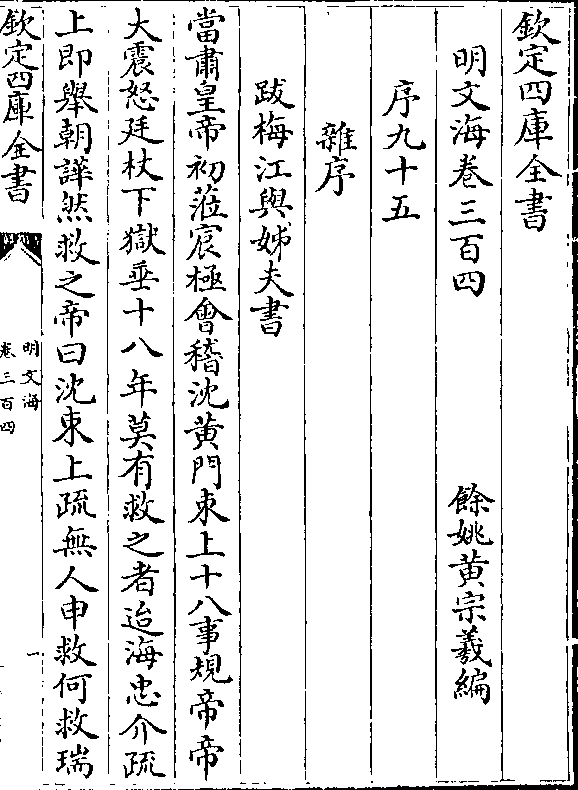 欽定四庫全書
明文海卷三百四
餘姚黄宗羲編
序九十五
雜序
跋梅江與姊夫書
當肅皇帝初蒞宸極會稽沈黄門束上十八事規帝帝
大震怒廷杖下獄垂十八年莫有救之者迨海忠介疏
上即舉朝譁然救之帝曰沈束上疏無人申救何救瑞
欽定四庫全書
明文海
卷三百四
一